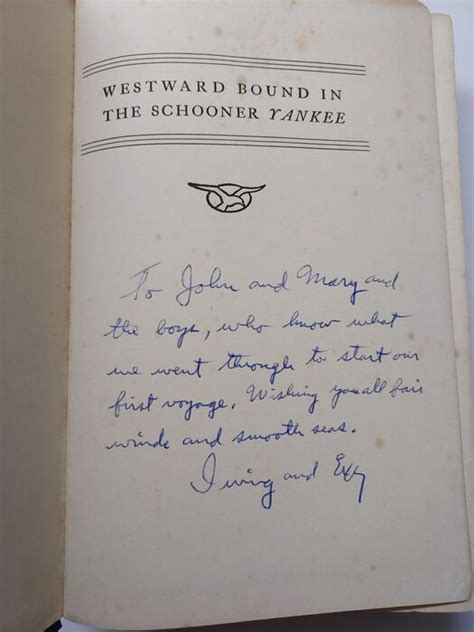 WESTWARD BOUND IN
THE SCHOONER YANKEE
To John and Mary and
the boys, who know what
we went through to start our
first voyage. Wishing you all fair
winds and smooth seas.
Irving and Exy